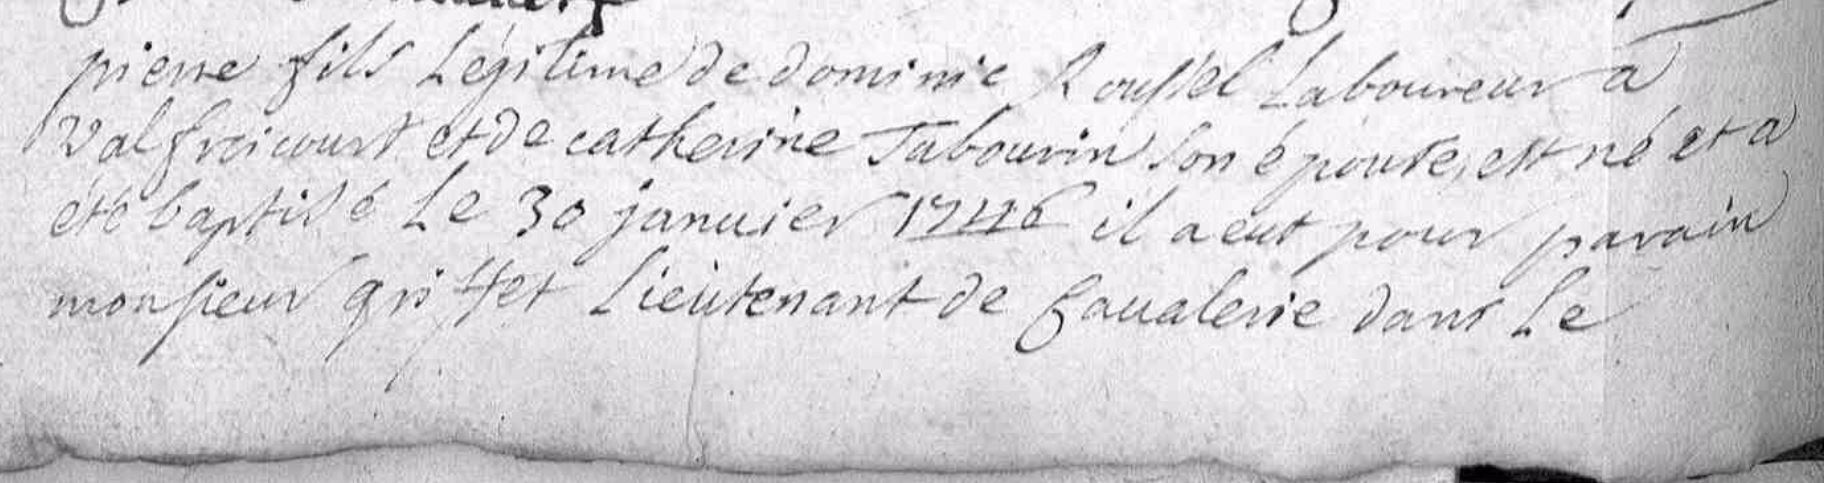 pierre fils Légitime de dominic Roussel Laboureur a
Valfroicourt et de catherine Tabourin son épouse, est né et a
été baptisé Le 30 janvier 1746 il a eut pour parain
monsieur griffet Lieutenant de Cavalerie dans Le